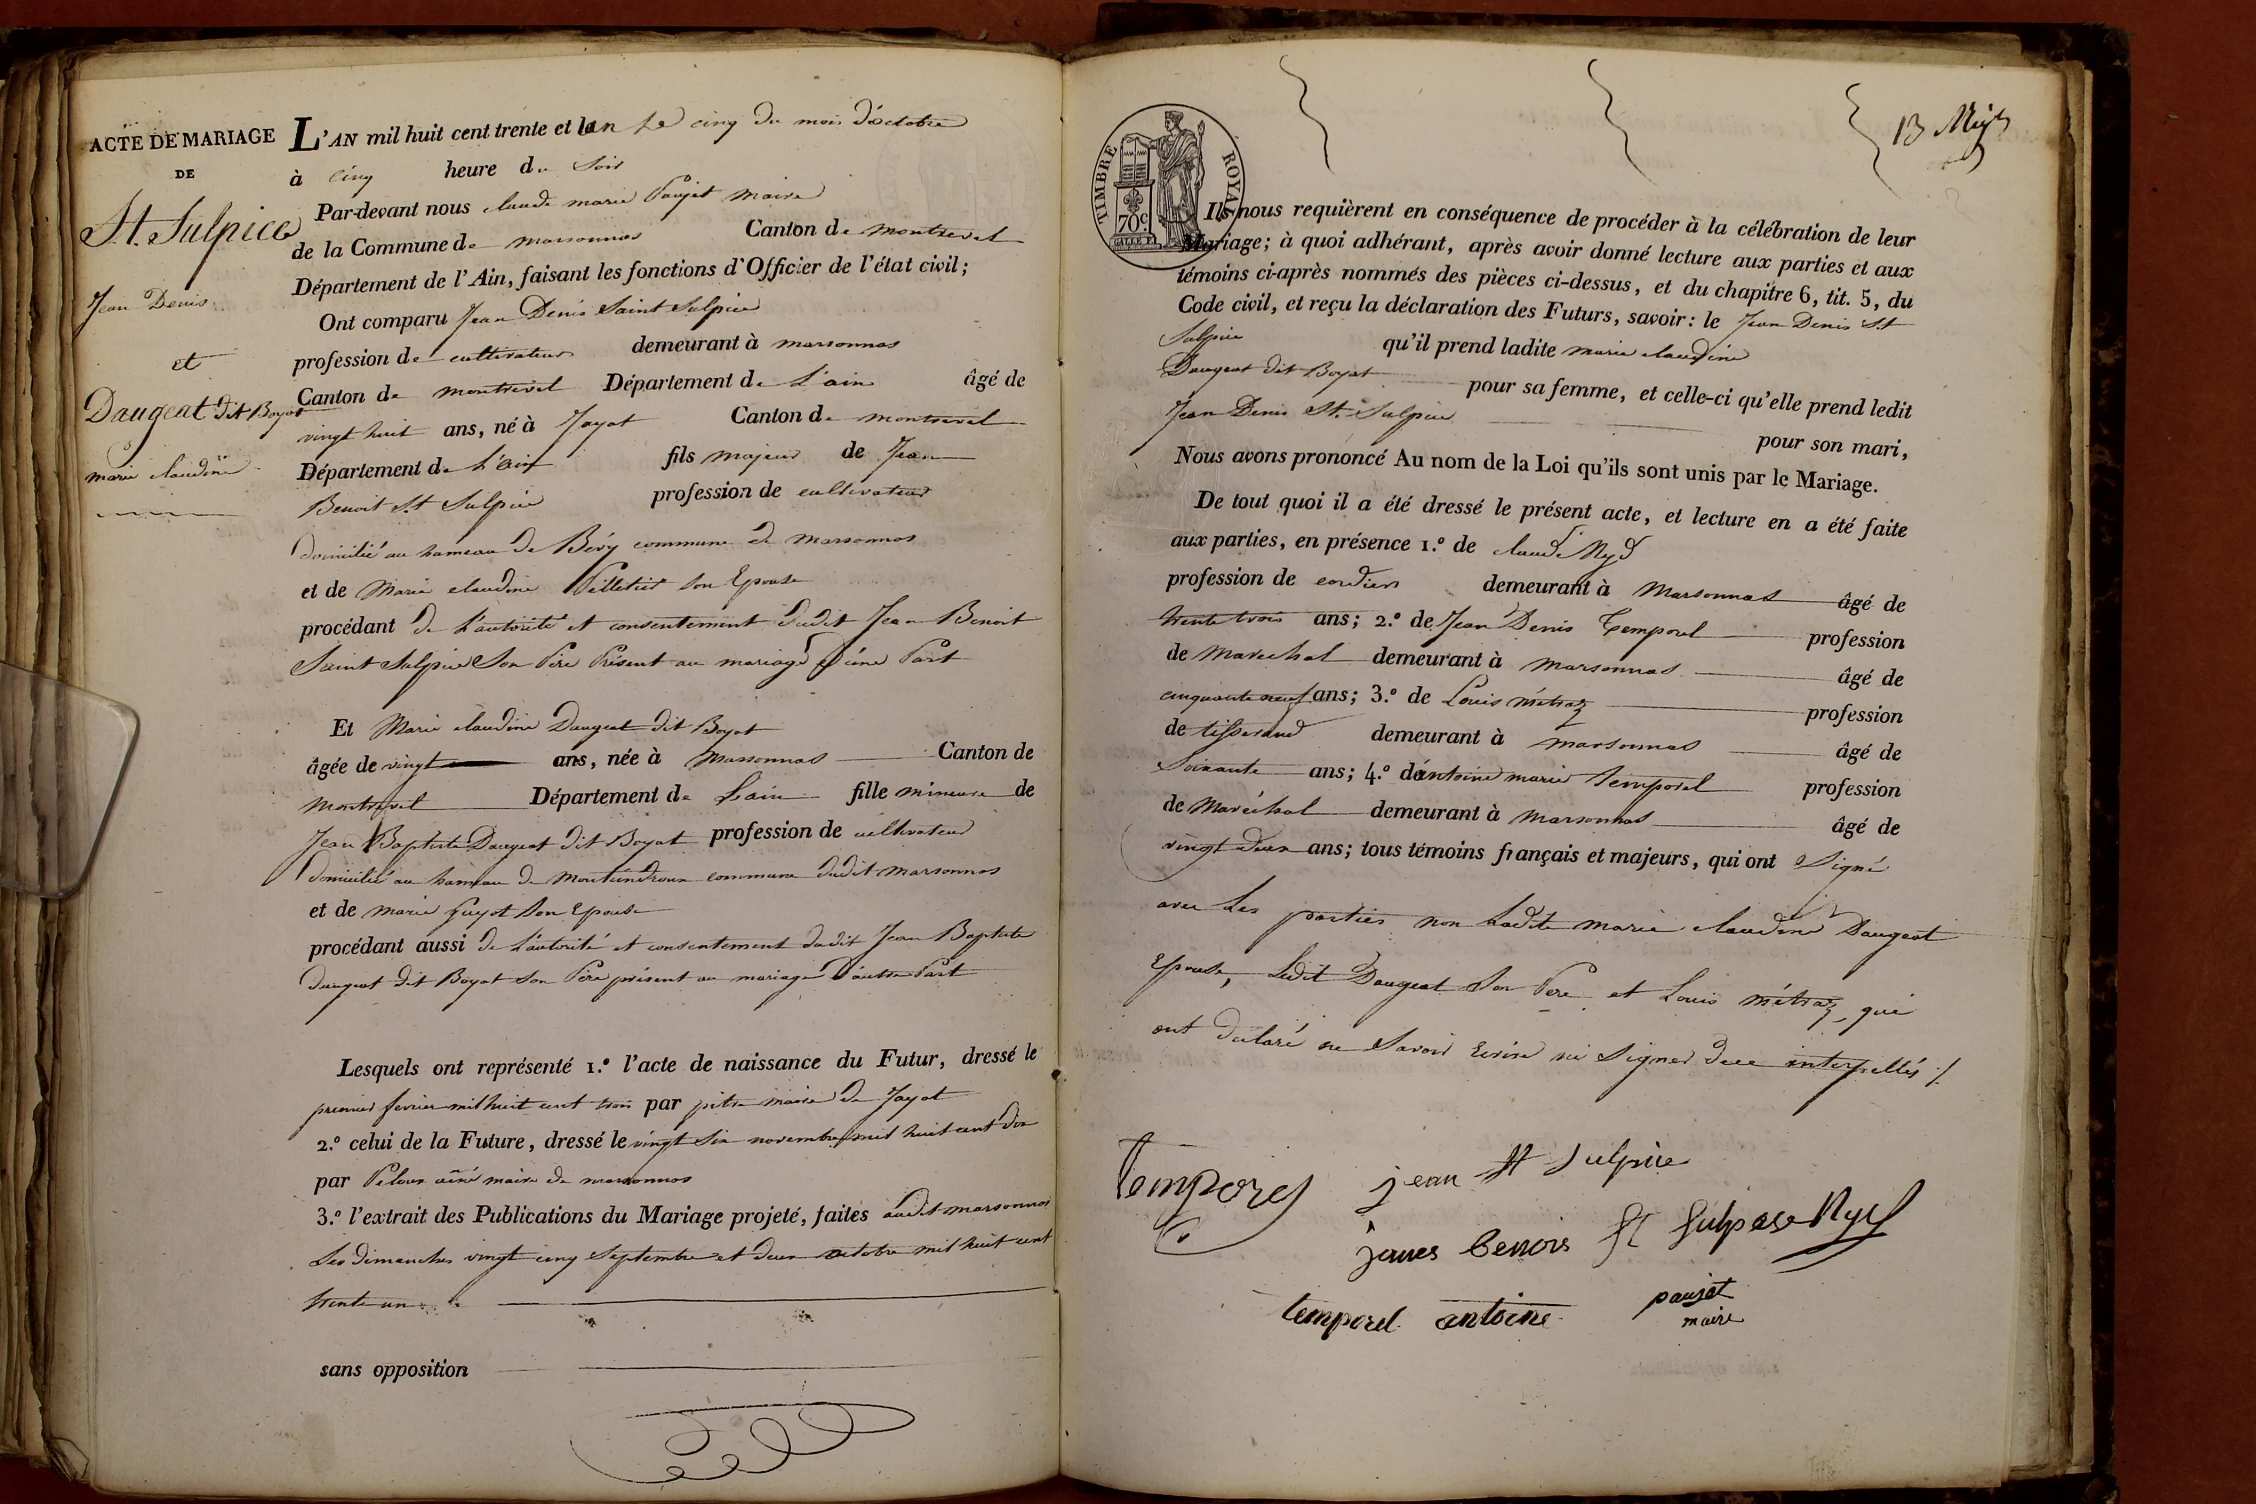 ACTE DE MARIAGE
DE
St. Sulpice
Jean Denis
et
Daugeat dit Boyat
marie claudine
L'AN mil huit cent trente et un le cinq du mois d'octobre
à cinq heure du soir
Par-devant nous claude marie Paujet maire
de la Commune de marsonnas Canton de montrevel
Département de l'Ain, faisant les fonctions d'Officier de l'état civil;
Ont comparu Jean Denis Saint Sulpice
profession de cultivateur demeurant à marsonnas
Canton de montrevel Département de L'ain âgé de
vingt huit ans, né à Jayat Canton de montrevel
Département de L'ain fils majeur de Jean
Benoit St Sulpice profession de cultivateur
domicilié au hameau de Bévy commune de marsonnas
et de Marie claudine Pelletier son Epouse
procédant de L'autorité et consentement dudit Jean Benoit
Saint Sulpice Son Père Présent au mariage d'une Part
Et Marie claudine Daugeat dit Boyat
âgée de vingt ans, née à Marsonnas Canton de
montrevel Département de Lain fille mineure de
Jean Baptiste Daugeat dit Boyat profession de cultivateur
domicilié au hameau de commune dudit marsonnas
et de marie Guyot son Epouse
procédant aussi de L'autorité et consentement dudit Jean Baptiste
Daugeat dit Boyat son Père présent au mariage D'autre Part
Lesquels ont représenté 1.º l'acte de naissance du Futur, dressé le
premier fevrier mil huit cent trois par pitre maire de Jayat
2.º celui de la Future, dressé le vingt six novembre mil huit cent dix
par ainé maire de marsonnas
3.º l'extrait des Publications du Mariage projeté, faites audit marsonnas
Les dimanches vingt cinq Septembre et deux octobre mil huit cent
trente un
sans opposition
TIMBRE ROYAL
70 c.
13
Ils nous requièrent en conséquence de procéder à la célébration de leur
Mariage; à quoi adhérant, après avoir donné lecture aux parties et aux
témoins ci-après nommés des pièces ci-dessus, et du chapitre 6, tit. 5, du
Code civil, et reçu la déclaration des Futurs, savoir: le Jean Denis St
Sulpice qu'il prend ladite marie claudine
Daugeat dit Boyat pour sa femme, et celle-ci qu'elle prend ledit
Jean Denis St. Sulpice pour son mari,
Nous avons prononcé Au nom de la Loi qu'ils sont unis par le Mariage.
De tout quoi il a été dressé le présent acte, et lecture en a été faite
aux parties, en présence 1.º de claude Nyd
profession de cordier demeurant à Marsonnas âgé de
trente trois ans; 2.º de Jean Denis Temporel profession
de marechal demeurant à marsonnas âgé de
cinquante neuf ans; 3.º de Louis métraz profession
de tisserand demeurant à marsonnas âgé de
Soixante ans; 4.º d'antoine marie temporel profession
de Maréchal demeurant à marsonnas âgé de
vingt deux ans; tous témoins français et majeurs, qui ont Signé
avec Les parties non Ladite marie claudine Daugeat
Epouse, Ledit Daugeat Son Père et Louis métraz, qui
ont déclaré ne Savoir Ecrire ni Signer de ce interpellés ./.
Temporel jean st sulpice
janes benois st sulpese Nyd
temporel antoine paujet
maire